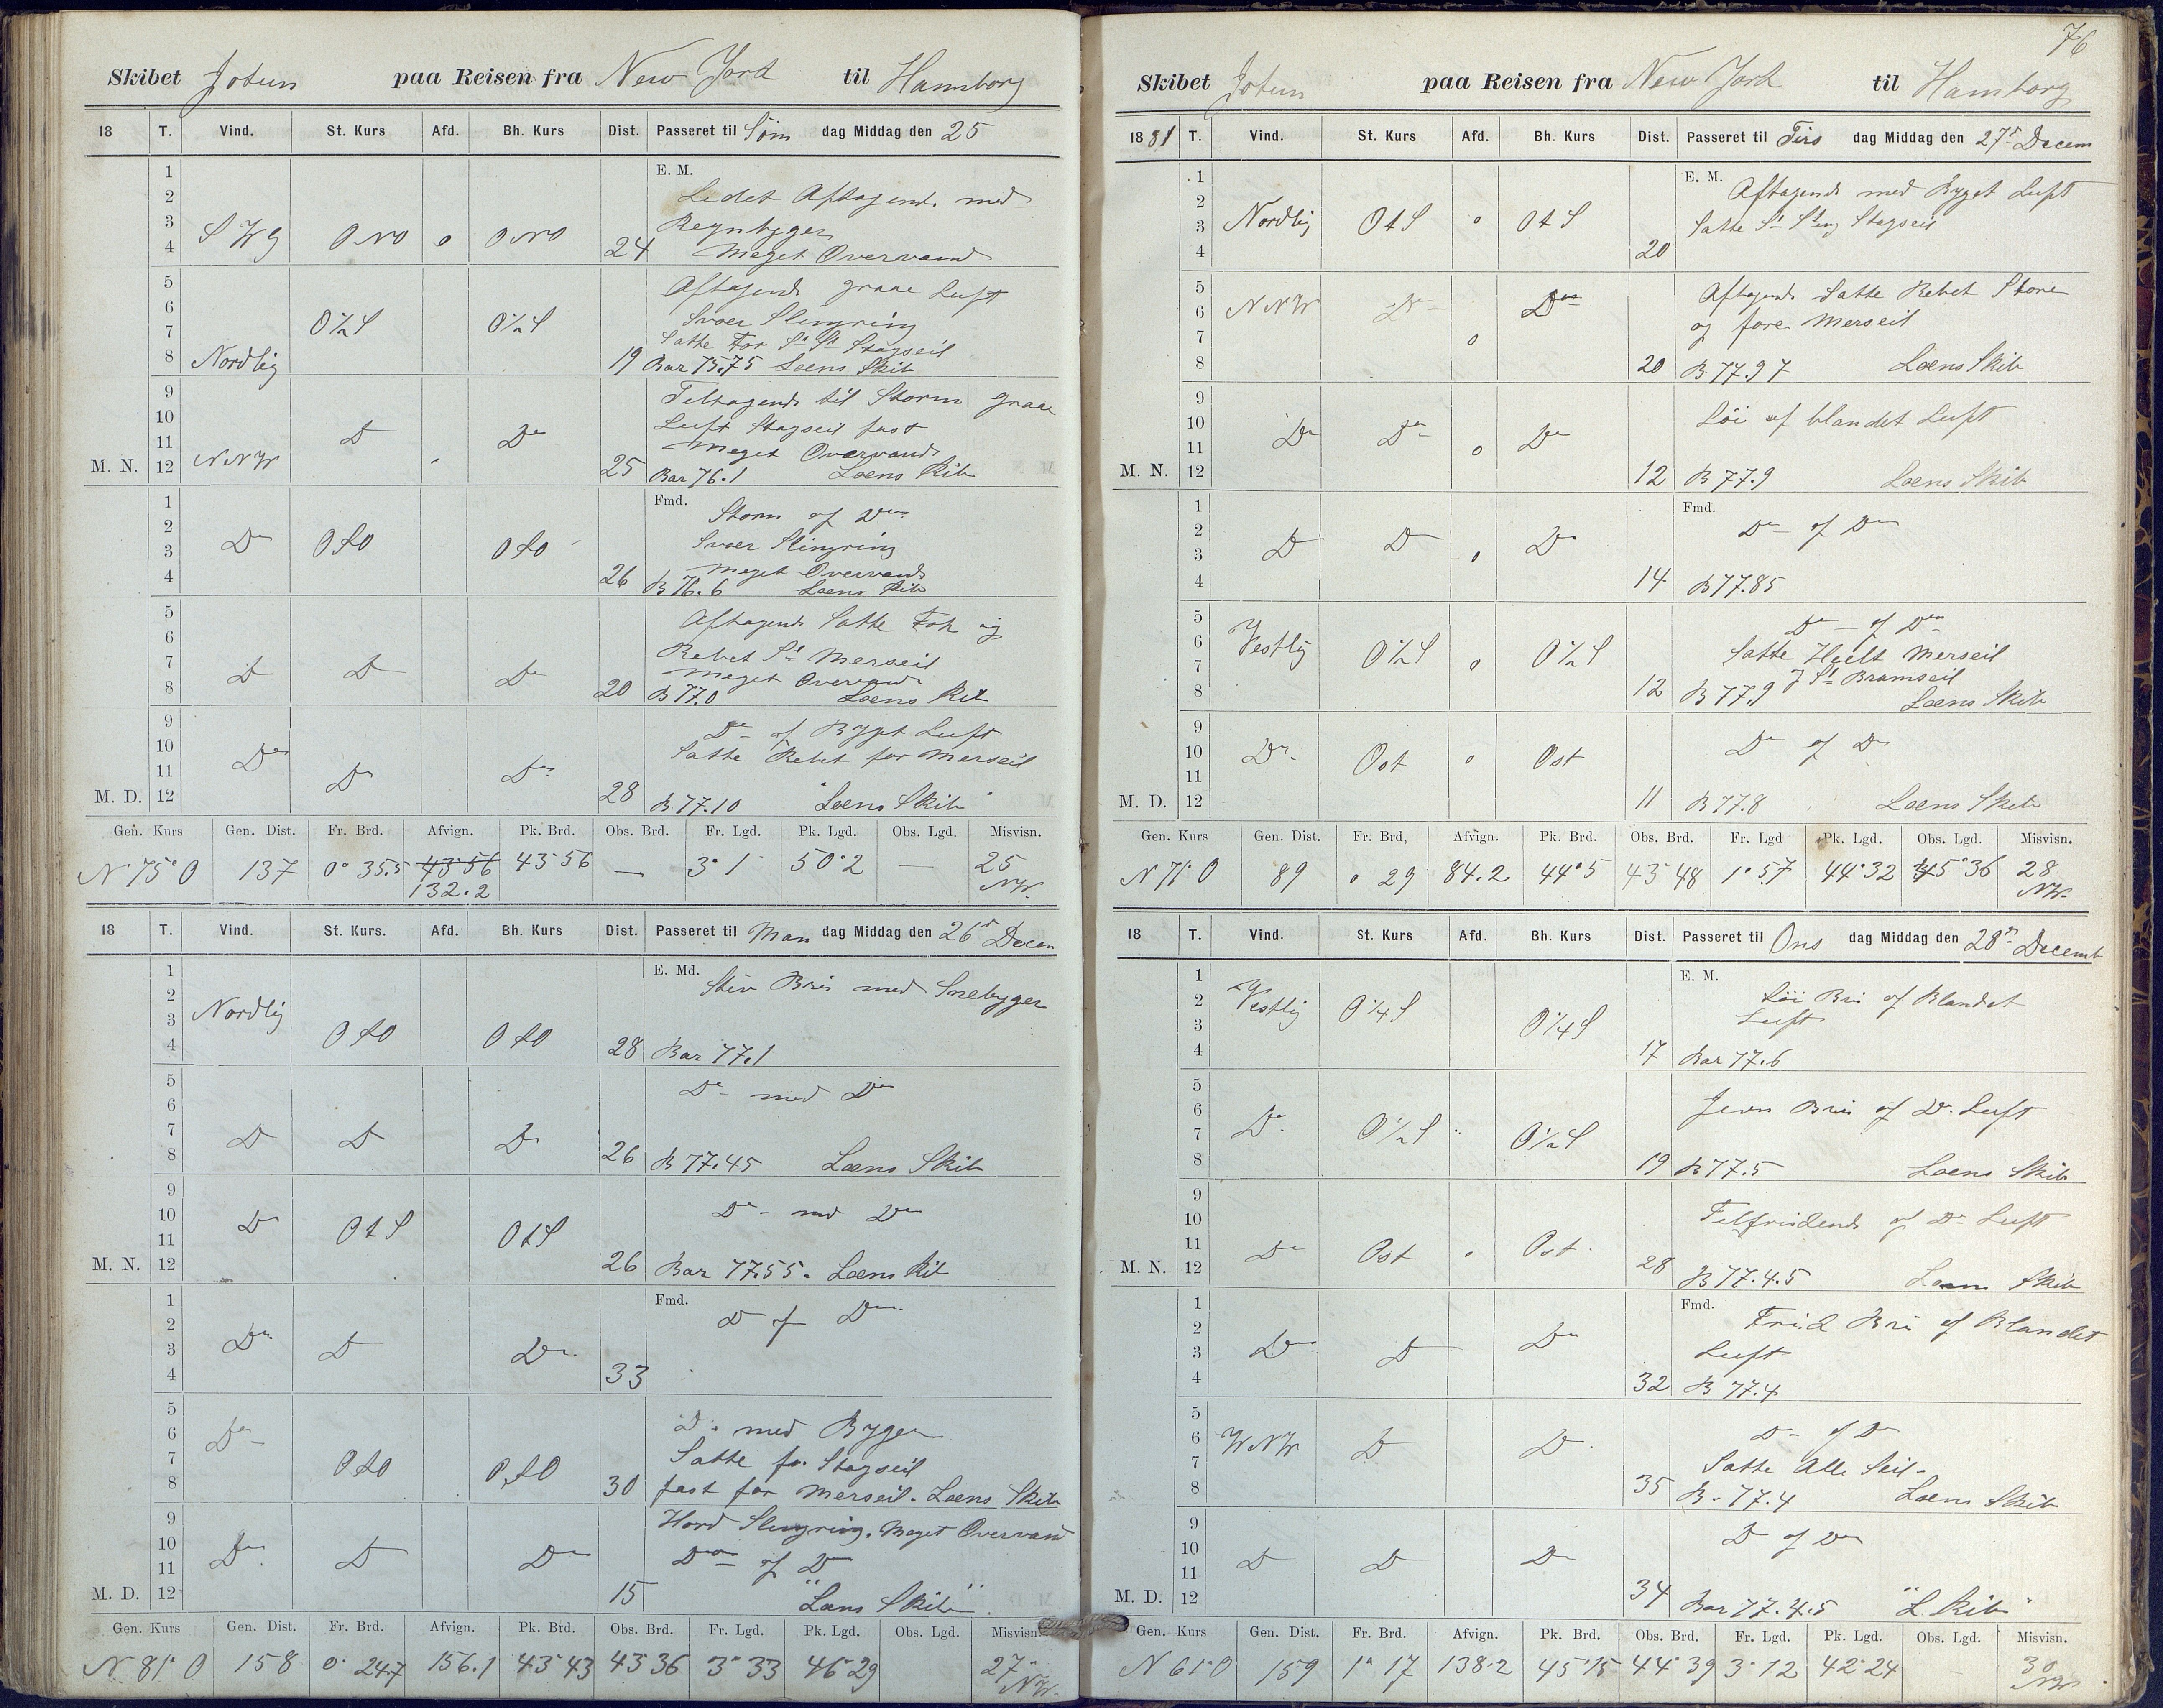 Skibet Jotun paa Reisen fra New York til Hamborg
18 T. Vind. St. Kurs Afd. Bh. Kurs Dist. Passeret til Søn dag Middag den 25
E. M.
1
2 Ledet Aftagende med
3 Regnbyger
4 S W g ONO o ONO 24 Meget Overvand
5 Aftagende graae Luft
6 O½S O½S Svær Slingring
7 Satte For St St Stagseil
8 Nordlig 19 Bar 75.75 Læns Skib
9 Tiltagende til Storm graae
10 D Do Luft Stagseil fast
11 Meget Overvand
M. N. 12 NNW 25 Bar 76.1 Læns Skib
Fmd.
1 Storm af Do
2 Svær Slingring
3 Do OtO OtO Meget Overvand
4 26 B 76.6 Læns Skib
5 Aftagende Satte Fok og
6 Rebet St Merseil
7 D D Do Meget Overvand
8 20 B 77.0 Læns Skib
9 Do af Bygt Luft
10 Do Satte Rebet for Merseil
11 Do Do
M. D. 12 28 B 77.10 "Læns Skib"
Gen. Kurs Gen. Dist. Fr. Brd. Afvign. Pk. Brd. Obs. Brd. Fr. Lgd. Pk. Lgd. Obs. Lgd. Misvisn.
N 75° O 137 0° 35.5 43°56 43°56 — 3° 1 50°2 — 25
132.2 NW.
18 T. Vind. St. Kurs. Afd. Bh. Kurs Dist. Passeret til Man dag Middag den 26de Decem
E. Md.
1 Stiv Bris med Snebyger
2 Nordlig
3 OtO OtO
4 28 Bar 77.1
5 Do med Do
6
7 D D D
8 26 B 77.45 Læns Skib
9
10 D OtS OtS Do med Do
11
M. N. 12 26 Bar 77.55. Læns Skib
Fmd.
1 D af Do
2 Do D Do
3
4 33
5 D. med Byger
6 Do Satte for Stagseil
7 OtO OtO
8 30 fast for Merseil. Læns Skib
9 Hård Slingring. Meget Overvand
10 Do D Do Do af D
11
M. D. 12 15 "Læns Skib"
Gen. Kurs Gen. Dist. Fr. Brd. Afvign. Pk. Brd. Obs. Brd. Fr. Lgd. Pk. Lgd. Obs. Lgd. Misvisn.
N 81° O 158 0° 24.7 156.1 43°43 43 36 3° 33 46°29 27°
NW.
76
Skibet Jotun paa Reisen fra New York til Hamborg
18 81 T. Vind. St. Kurs Afd. Bh. Kurs Dist. Passeret til Tirs dag Middag den 27de Decem
E. M.
1 Aftagende med Byget Luft
2 Nordlig OtS o OtS Satte St Stagseil
3
4 20
5 Aftagende Satte Rebet Store
6 NNW Do Do og fore Merseil
7 o
8 20 B 77.97 Læns Skib
9 Løi af blandet Luft
10 Do Do o Do
11
M. N. 12 12 B 77.9 Læns Skib
Fmd.
1 Do af Do
2
3 D D o Do
4 14 B 77.85
5 Do af Do
6 Vestlig O½S o O½S Satte Heelt Merseil
7 St Bramseil
8 12 B 77.9 Læns Skib
9 Do af Do
10 Do. Ost o Ost
11
M. D. 12 11 B 77.8 Læns Skib
Gen. Kurs Gen. Dist. Fr. Brd, Afvign. Pk. Brd. Obs. Brd. Fr. Lgd Pk. Lgd. Obs. Lgd. Misvisn.
N 71° O 89 ° 29 84.2 44°5 43°48 1° 57 44°32 45°36 28
NW.
18 T. Vind. St. Kurs Afd. Bh. Kurs Dist. Passeret til Ons dag Middag den 28de Decemb
E. M.
1 Løi Bris af Blandet
2 Vestlig O¼S Luft
3 O¼S
4 17 Bar 77.6
5 Jevn Bris af Do. Luft
6 Do O½S
7 O½S
8 19 B 77.5 Læns Skib
9 Tilfriskende af Do Luft
10
11 Do Ost Ost
M. N. 12 28 B 77.4.5 Læns Skib
Fmd.
1 Frisk Bris af Blandet
2 Do D Do Luft
3
4 32 B 77.4
5 D af D
6 WNW D D Satte Alle Seil.
7
8 35 B. 77.4 Læns Skib
9 D af Do
10
11 D D Do
M. D. 12 34 Bar 77.4.5 "L. Skib"
Gen. Kurs Gen. Dist. Fr. Brd. Afvign. Pk. Brd. Obs. Brd. Fr. Lgd. Pk. Lgd. Obs. Lgd. Misvisn.
N 61° O 159 1° 17 138.2 45°15 44°39 3°12 42°24 30
NW